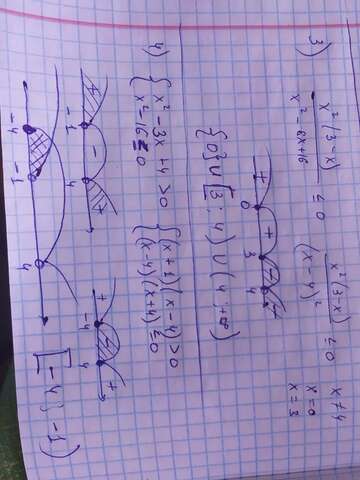 3) x²(3-x) / x²-8x+16 ≤ 0 x²(3-x) / (x-4)² ≤ 0 x≠4
x=0
x=3
+ + 
0 3 4
{0}∪[3;4)∪(4;+∞)
4) { x²-3x+4>0 { (x+1)(x-4)>0
{ x²-16≤0 { (x-4)(x+4)≤0
+ - +
-1 4
+ - +
-4 4
-4 -1 4
[-4;-1)